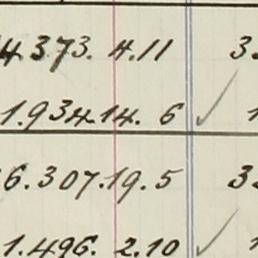 4373. 4.11 3
1.934.14. 6 ✓ 1
6.307.19.5 3
1.496. 2.10 ✓ 1